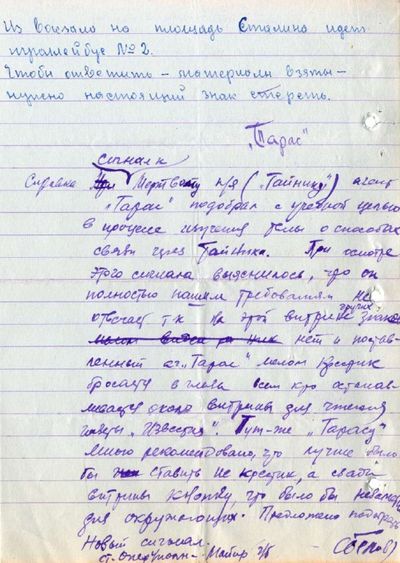 Из вокзала на площадь Сталина идет
троллейбус №2.
Чтобы ответить – материалы взяты –
нужно настоящий знак стереть.
„Тарас"
сигнал к
Справка При Мертвому п/я („Тайнику") агент
„Тарас" подобрал с учебной целью
в процессе изучения темы о способах
связи через Тайники. При осмотре
этого сигнала выяснилось, что он
полностью нашим требованиям не
отвечает т.к. на этой витрине других знаков
мелом нет и постав-
ленный аг. „Тарас" мелом крестик
бросается в глаза всем кто останав-
ливается около витрины для чтения
газеты „Известия". Тут-же „Тарасу"
мною рекомендовано, что лучше было
бы ставить не крестик, а сзади
витрины кнопку, что было бы незаметно
для окружающих. Предложено подобрать
новый сигнал.
ст. Оперуполн – Майор г/б